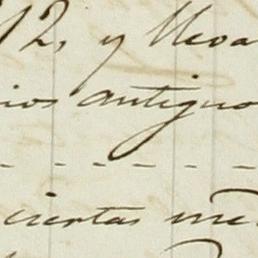 12, y lleva
ios antiguo
- - - - - -
ciertas me